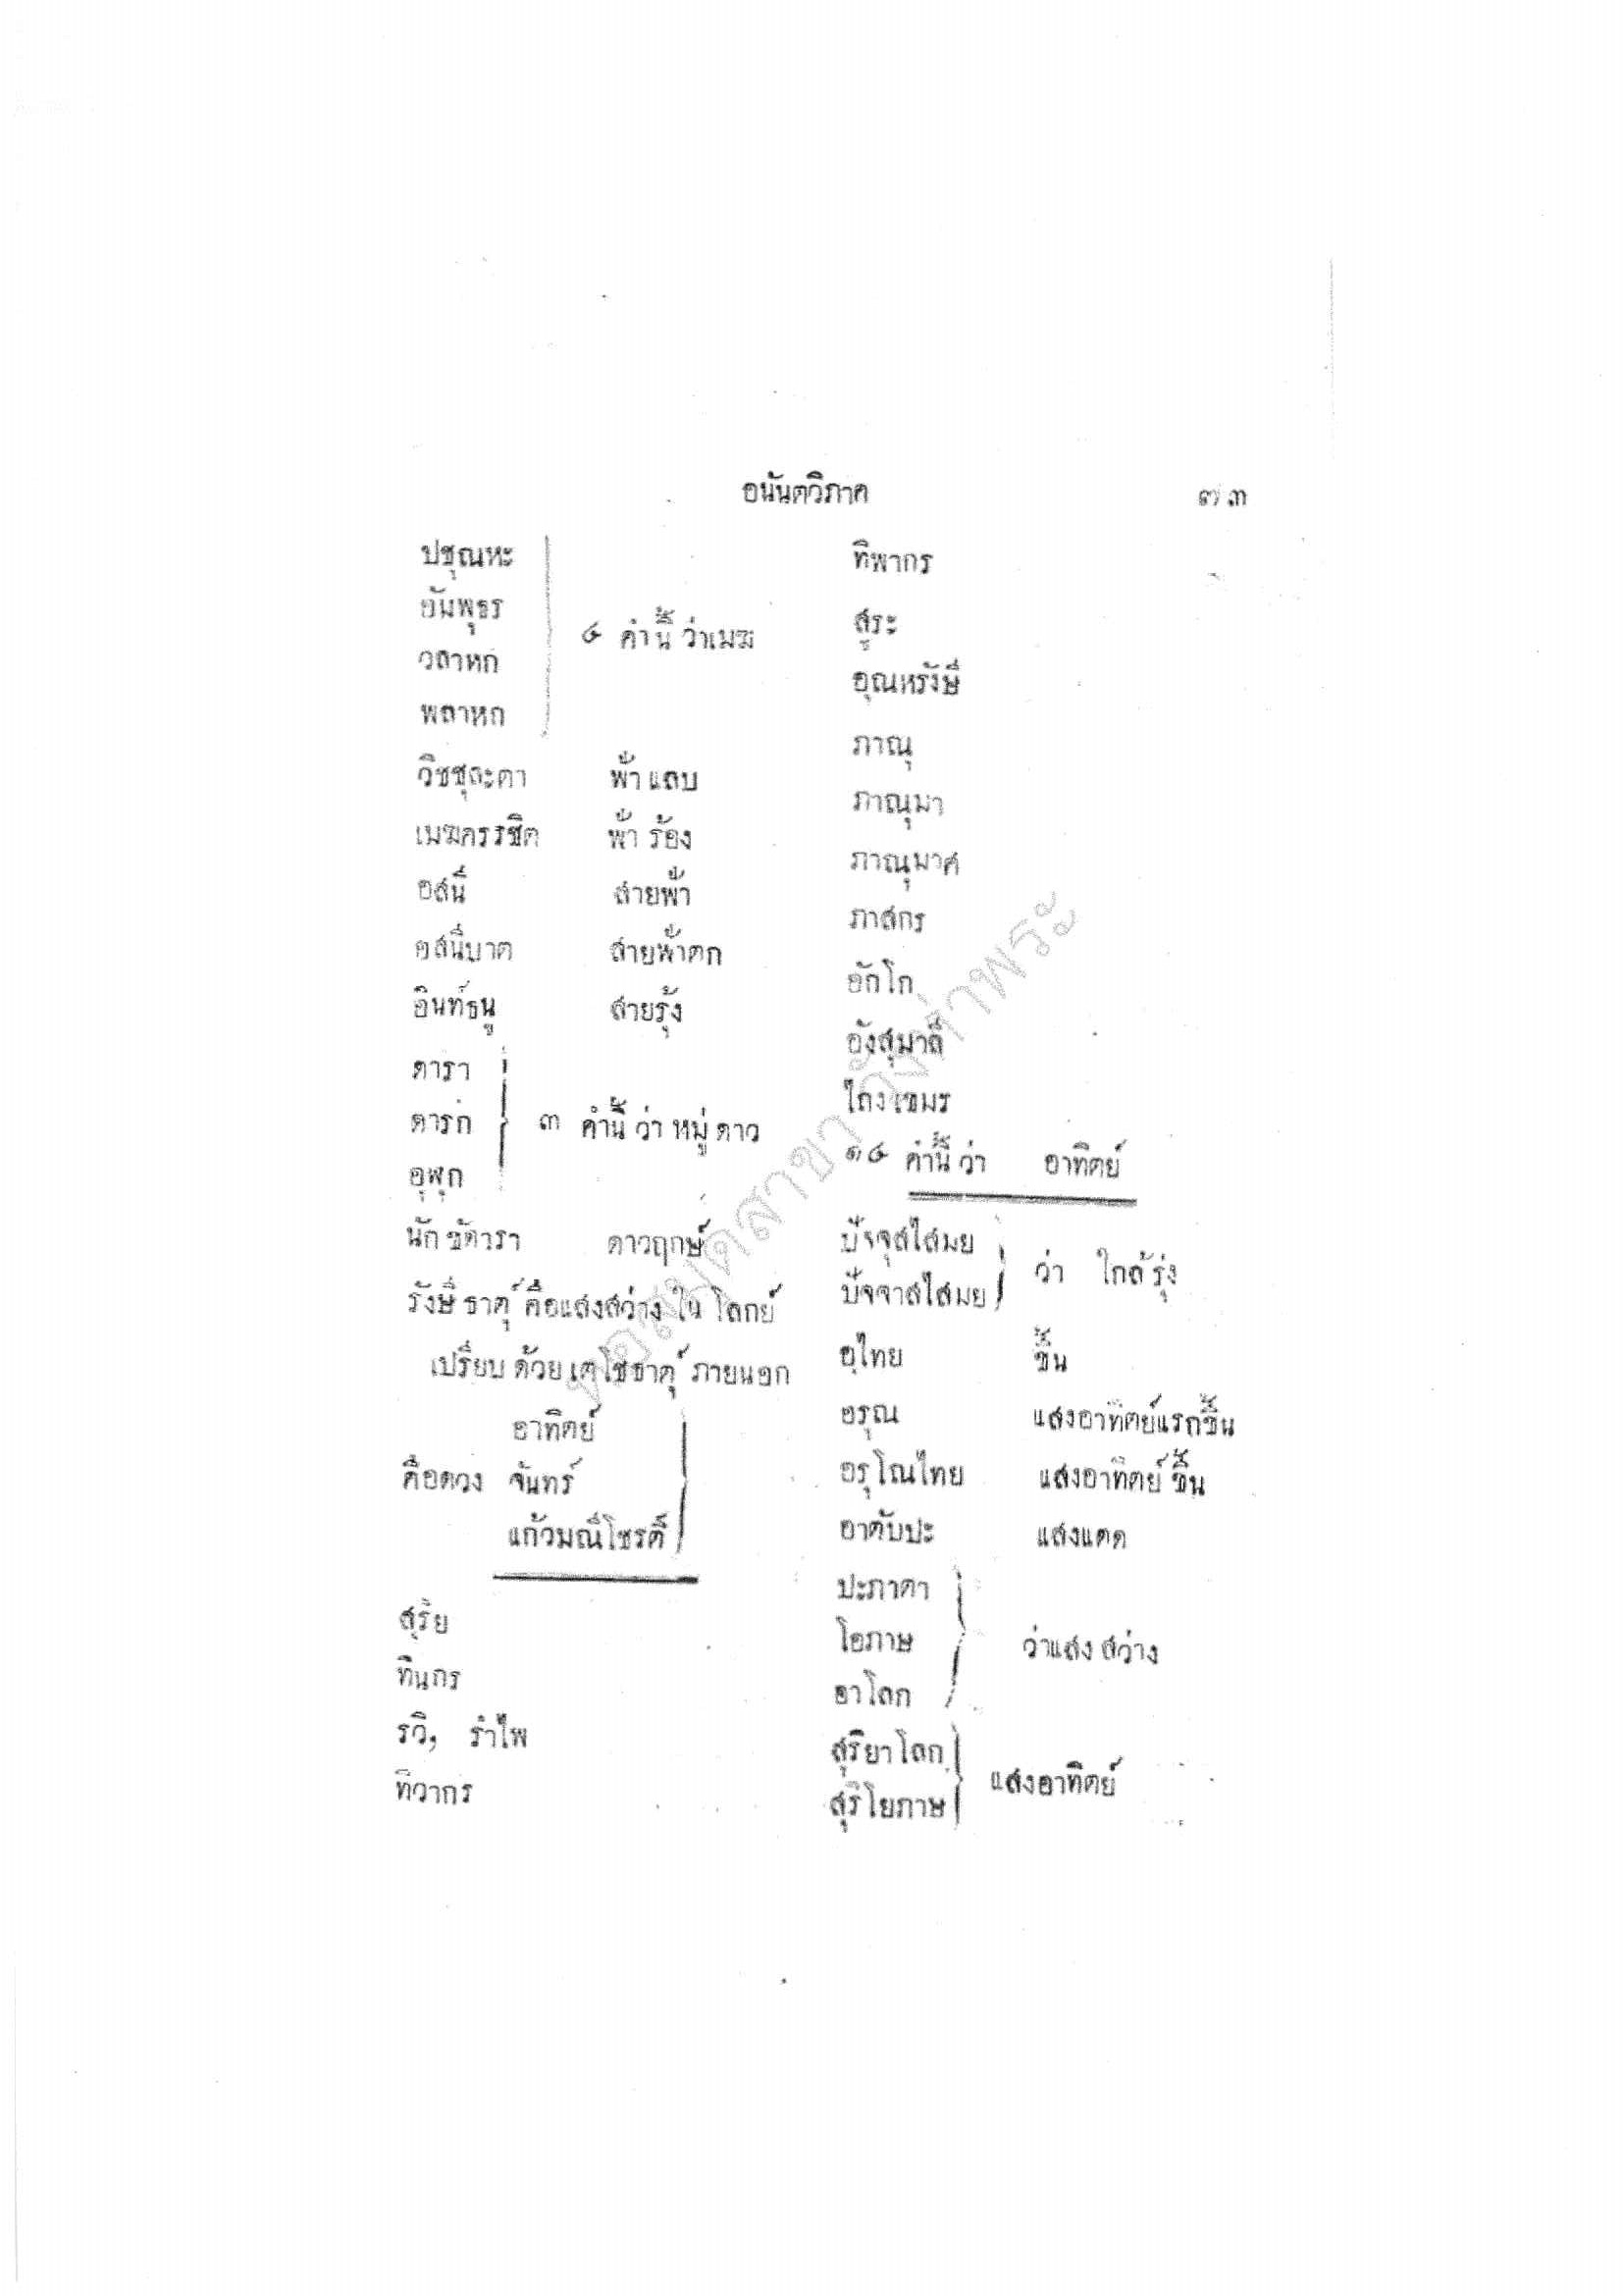 อนันตวิภาค ๗๓
ปชุณหะ
อัมพุธร
วลาหก
พลาหก
๔ คำนี้ ว่าเมฆ
วิชชุละดา ฟ้าแลบ
เมฆครรชิต ฟ้าร้อง
อสนี สายฟ้า
อสนีบาต สายฟ้าตก
อินท์ธนู สายรุ้ง
ดารา
ดารก
อุฬุก
๓ คำนี้ ว่า หมู่ดาว
นักขัดารา ดาวฤกษ์
รังษีธาตุ์ คือแสงสว่าง ใน โลกย์
เปรียบด้วยเตโชธาตุ์ ภายนอก
อาทิตย์
คือดวง จันทร์
แก้วมณีโชรติ์
สุริย
ทินกร
รวิ, รำไพ
ทิวากร
ทิพากร
สูระ
อุณหรังษี
ภาณุ
ภาณุมา
ภาณุมาศ
ภาสกร
อักโก
อังสุมาลี
ไถงเขมร
๑๔ คำนี้ ว่า อาทิตย์
ปัจจุสไสมย
ปัจจาสไสมย
ว่า ใกล้รุ่ง
อุไทย ขึ้น
อรุณ แสงอาทิตย์แรกขึ้น
อรุโณไทย แสงอาทิตย์ขึ้น
อาตับปะ แสงแดด
ปะภาดา
โอภาษ
อาโลก
ว่าแสงสว่าง
สุริยาโลก
สุริโยภาษ
แสงอาทิตย์
หอสมุดสาขา วังท่าพระ